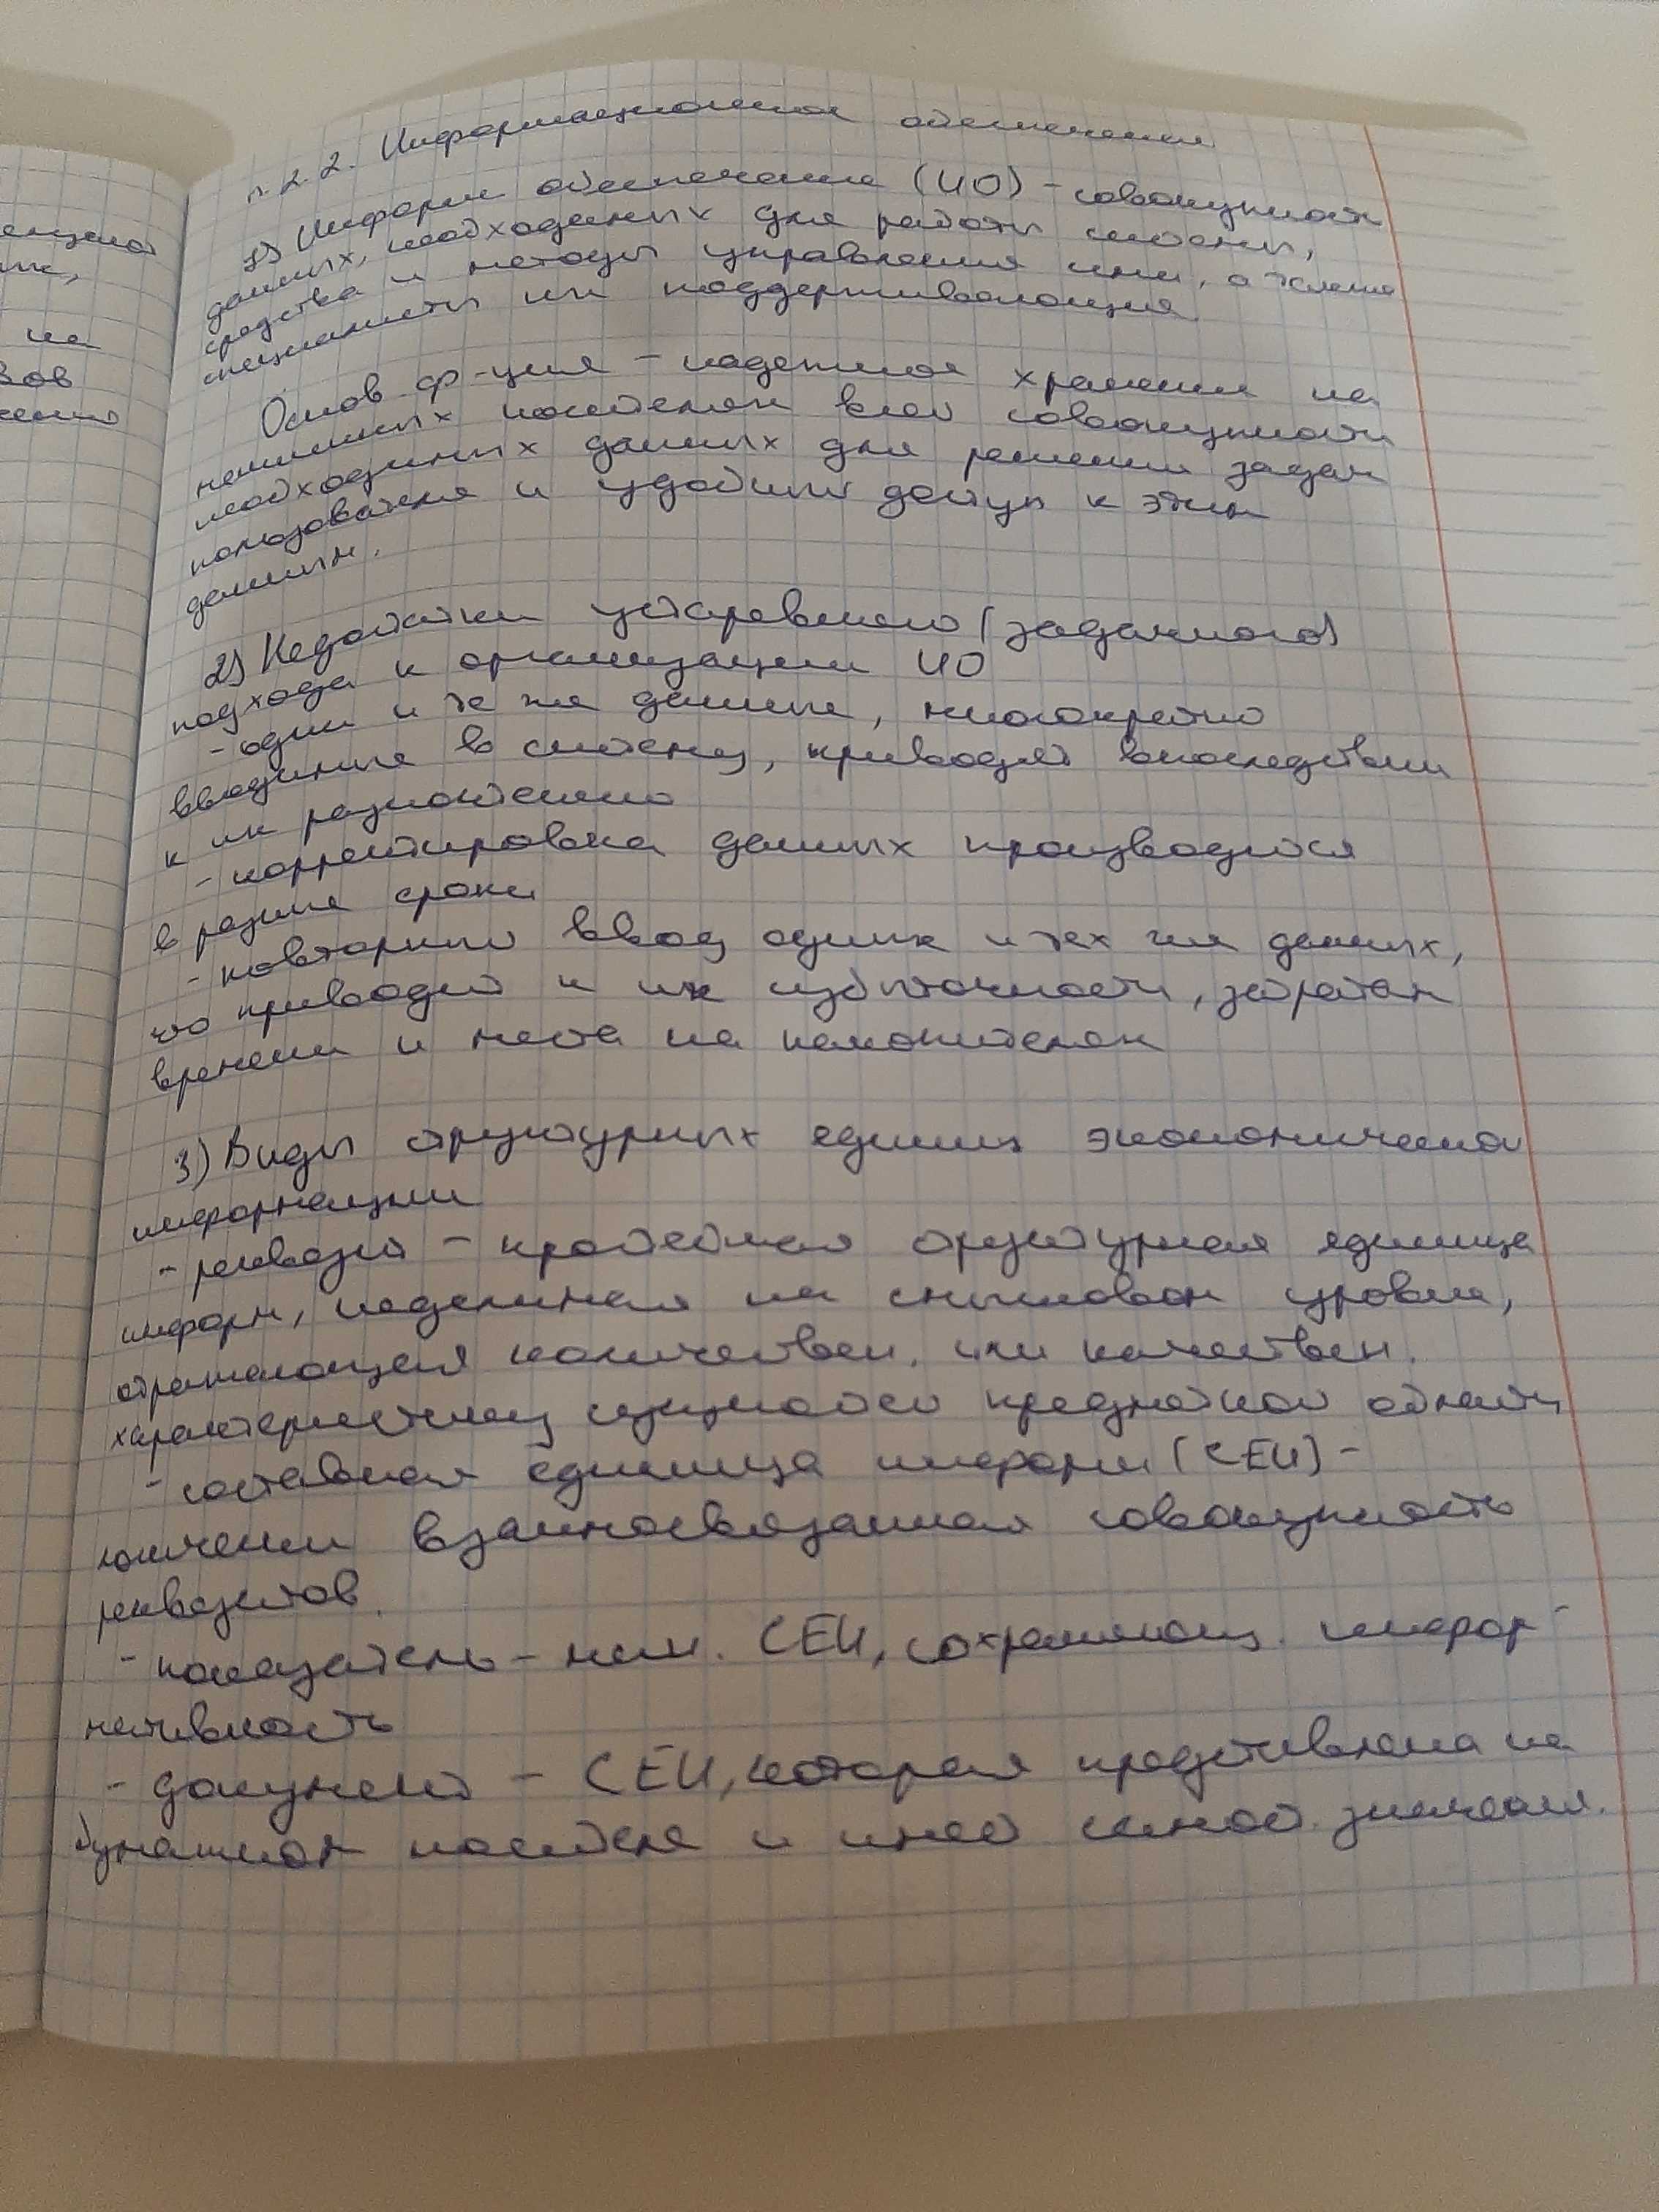 ве
зов
п. 2.2. Информационное обеспечение
1) Информ обеспечение (ИО) – совокупность
данных, необходимых для работы системы,
средства и методы управления ими, а также
специалисты их поддерживающие
Основ ф-ция – надежное хранение на
машинных носителях всей совокупности
необходимых данных для решения задач
пользователя и удобный доступ к этим
данным.
2) Недостатки устаревшего (задачного)
подхода к организации ИО
- одни и те же данные, многократно
вводимые в систему, приводят впоследствии
к их разночтению
- корректировка данных производится
в разные сроки
- повторный ввод одних и тех же данных,
что приводит к их избыточности, затратам
времени и места на накопителях
3) Виды структурных единиц экономической
информации
- реквизит – простейшая структурная единица
информ, неделимая на смысловом уровне,
отражающая количествен. или качествен.
характеристику сущностей предметной области
- составная единица информ (СЕИ) –
логически взаимосвязанная совокупность
реквизитов.
- показатель – мин. СЕИ, сохраняющ. инфор-
мативность
- документ – СЕИ, которая представлена на
бумажном носителе и имеет самост. значение.